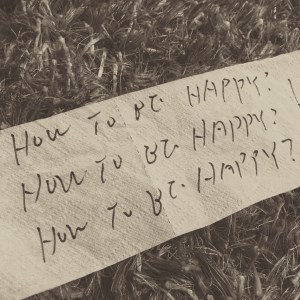 HOW TO BE HAPPY?
HOW TO BE HAPPY?
HOW TO BE HAPPY?